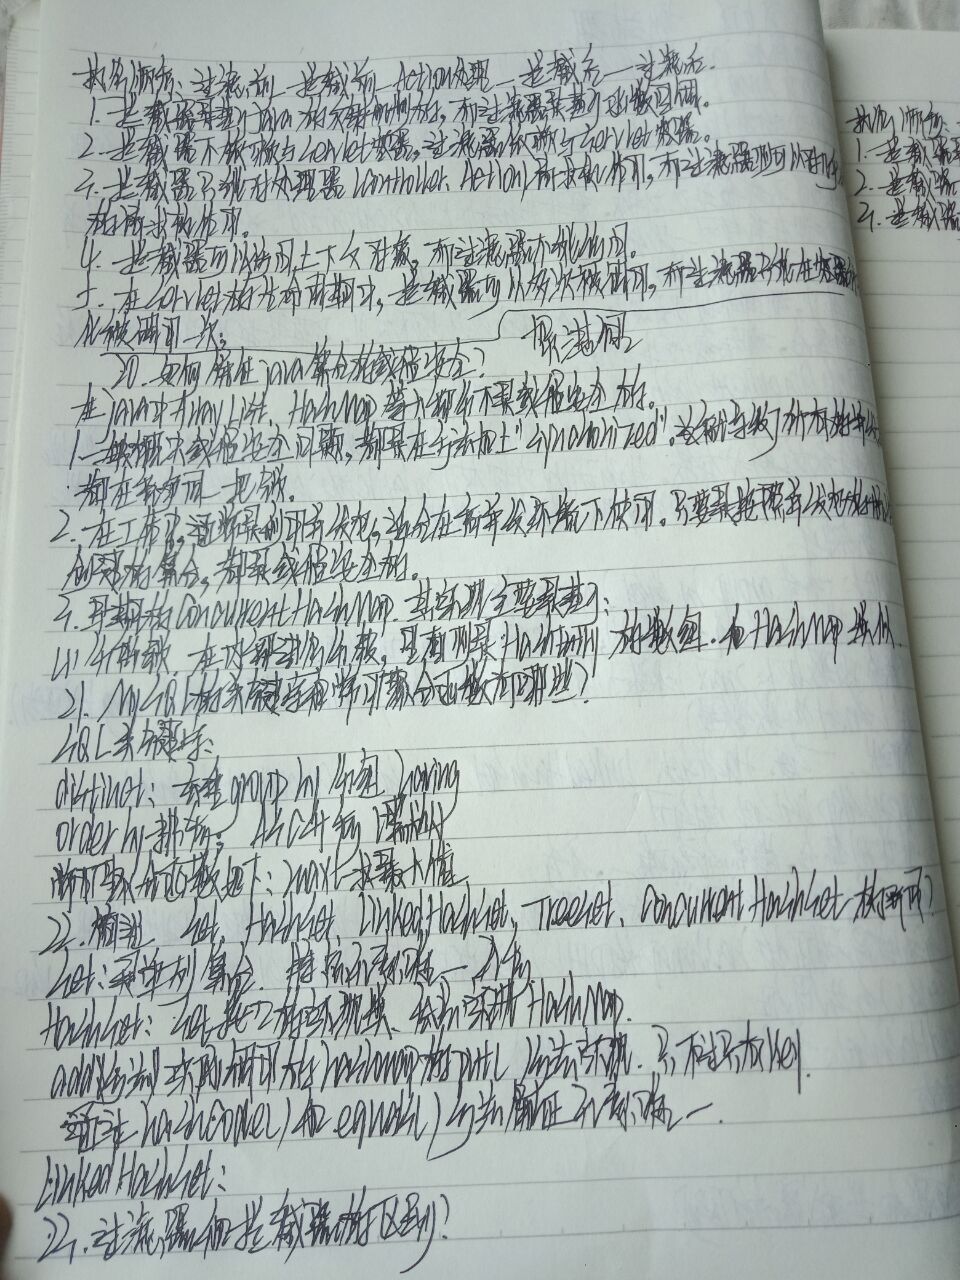 执行顺序:过滤前—拦截前—Action处理—拦截后—过滤后.
1.拦截器是基于java的反射机制的,而过滤器是基于函数回调。
2.拦截器不依赖与Servlet容器,过滤器依赖与Servlet容器。
3.拦截器只能对处理器Controller Action请求起作用,而过滤器则可以对几乎
所有的请求起作用。
4.拦截器可以访问上下文对象,而过滤器不能访问。
5.在Servlet的生命周期中,拦截器可以多次被调用,而过滤器只能在容器初
化被调用一次;
20.如何保证java集合的线程安全?
在java中ArrayList、HashMap等大都不是线程安全的。
1.一般解决线程安全问题,都是在方法加上"synchronized",这样导致了所有的
都在争夺同一把锁。
2.在工作中,通常是利用并发包,
创建的集合,都是线程安全的。
3.早期的ConcurrentHashMap.其实现主要是基于:
(1)分离锁,在内部进行分段,里面则是HashEntry的数组.和HashMap类似.
21.MySQL的关键字和常用聚合函数有哪些?
SQL关键字:
distinct:去重group by分组having
order by排序。ASC升序
常用聚合函数如下:max()求最大值
22.简述 Set、HashSet、LinkedHashSet、TreeSet、ConcurrentHashSet
Set:单列集合
HashSet:Set接口的实现类、底层实现HashMap.
add()方法实则调用的hashmap的put()方法实现.只不过只放key.
通过hashCode()和equals()方法保证元素唯一.
LinkedHashSet:
22.过滤器和拦截器的区别?
执行顺序:
1.拦截器
2.拦截器
3.拦截器